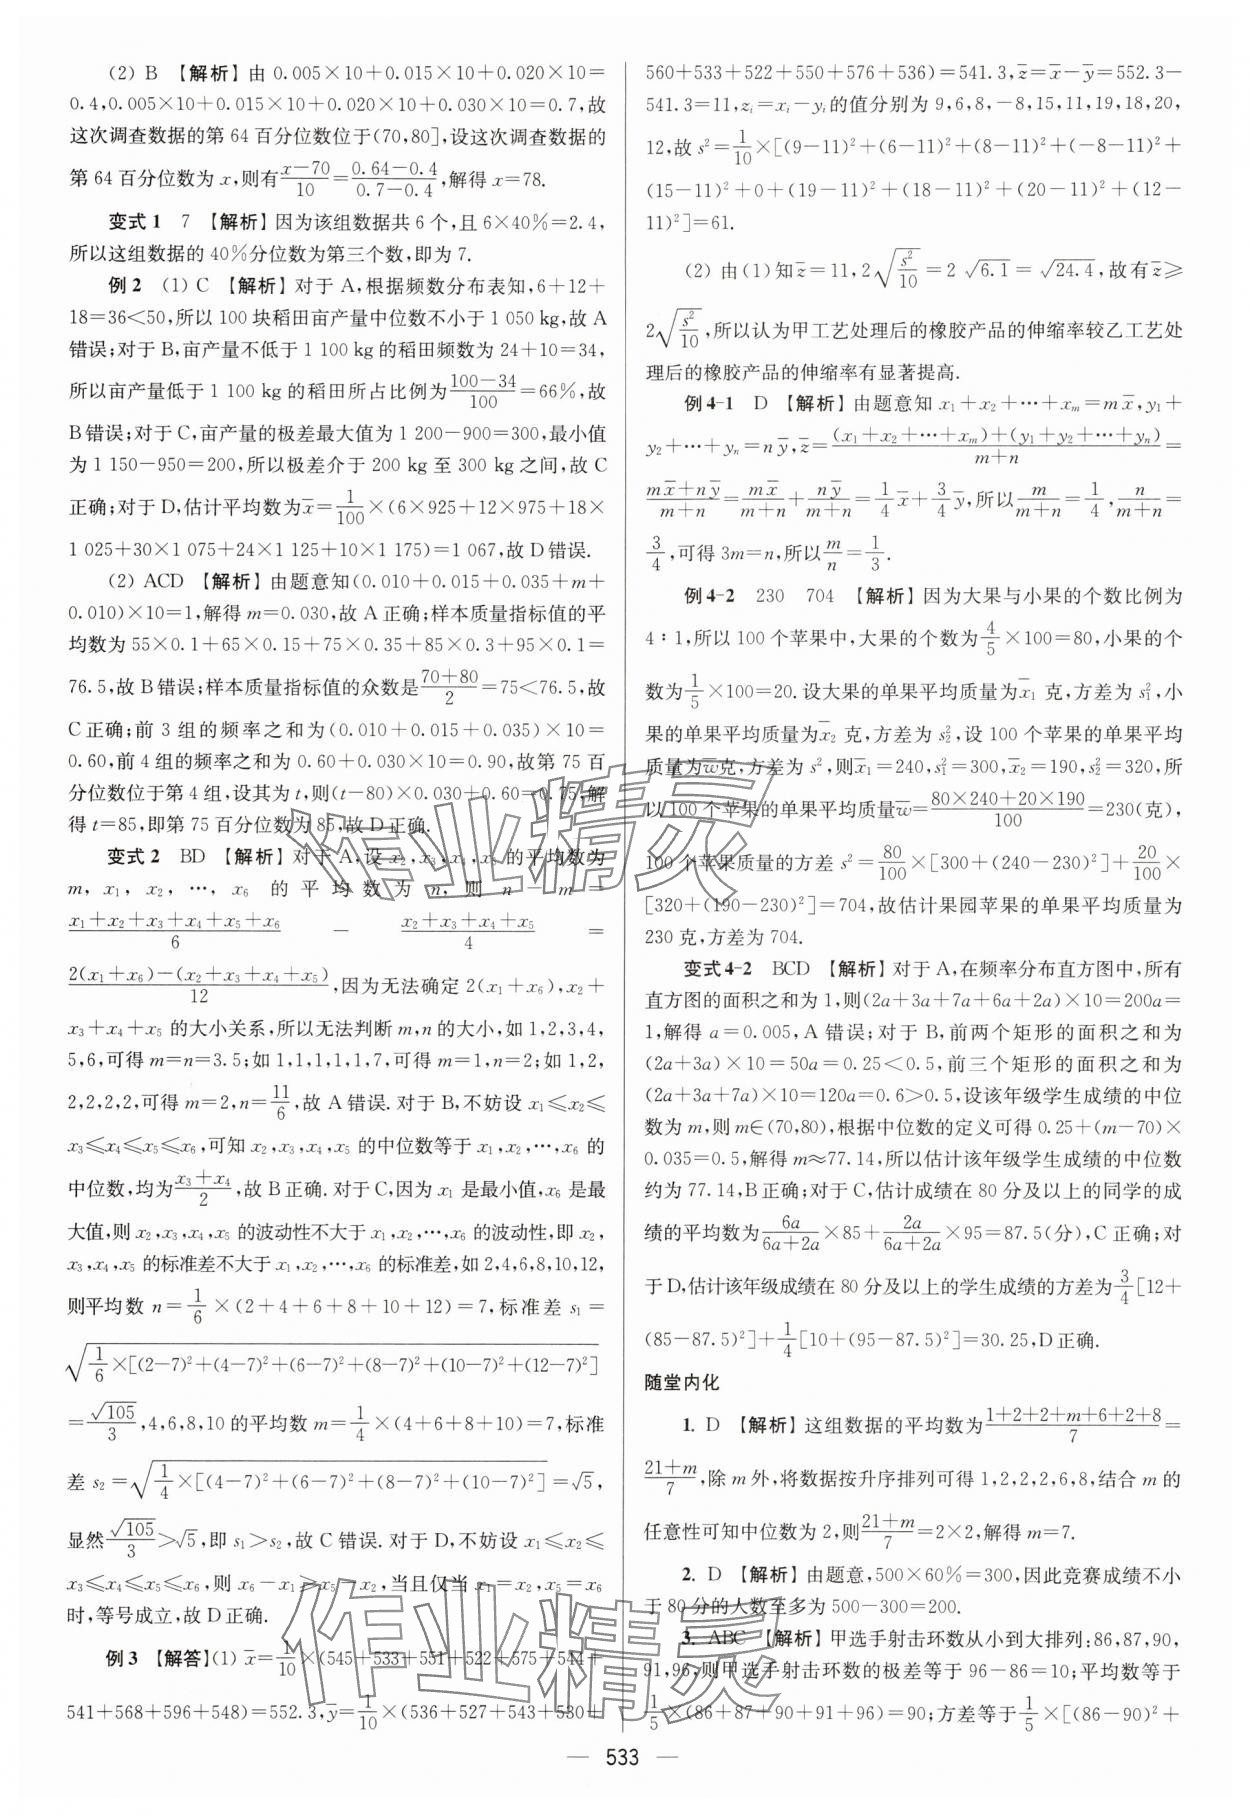 (2) B 【解析】由 0.005×10+0.015×10+0.020×10=
0.4,0.005×10+0.015×10+0.020×10+0.030×10=0.7,故
这次调查数据的第 64 百分位数位于(70,80],设这次调查数据的
第 64 百分位数为 x,则有(x-70)/10=(0.64-0.4)/(0.7-0.4),解得 x=78.
变式 1 7 【解析】因为该组数据共 6 个,且 6×40%=2.4,
所以这组数据的 40%分位数为第三个数,即为 7.
例 2 (1) C 【解析】对于 A,根据频数分布表知,6+12+
18=36<50,所以 100 块稻田亩产量中位数不小于 1 050 kg,故 A
错误;对于 B,亩产量不低于 1 100 kg 的稻田频数为 24+10=34,
所以亩产量低于 1 100 kg 的稻田所占比例为(100-34)/100=66%,故
B 错误;对于 C,亩产量的极差最大值为 1 200-900=300,最小值
为 1 150-950=200,所以极差介于 200 kg 至 300 kg 之间,故 C
正确;对于 D,估计平均数为x̄=1/100×(6×925+12×975+18×
1 025+30×1 075+24×1 125+10×1 175)=1 067,故 D 错误.
(2) ACD 【解析】由题意知(0.010+0.015+0.035+m+
0.010)×10=1,解得 m=0.030,故 A 正确;样本质量指标值的平
均数为 55×0.1+65×0.15+75×0.35+85×0.3+95×0.1=
76.5,故 B 错误;样本质量指标值的众数是(70+80)/2=75<76.5,故
C 正确;前 3 组的频率之和为(0.010+0.015+0.035)×10=
0.60,前 4 组的频率之和为 0.60+0.030×10=0.90,故第 75 百
分位数位于第 4 组,设其为 t,则(t-80)×0.030+0.60=0.75,解
得 t=85,即第 75 百分位数为 85,故 D 正确.
变式 2 BD 【解析】对于 A,设 x₂,x₃,x₄,x₅ 的平均数为
m,x₁,x₂,…,x₆ 的平均数为 n,则 n-m=
(x₁+x₂+x₃+x₄+x₅+x₆)/6 - (x₂+x₃+x₄+x₅)/4 =
(2(x₁+x₆)-(x₂+x₃+x₄+x₅))/12,因为无法确定 2(x₁+x₆),x₂+
x₃+x₄+x₅ 的大小关系,所以无法判断 m,n 的大小,如 1,2,3,4,
5,6,可得 m=n=3.5;如 1,1,1,1,1,7,可得 m=1,n=2;如 1,2,
2,2,2,2,可得 m=2,n=11/6,故 A 错误.对于 B,不妨设 x₁≤x₂≤
x₃≤x₄≤x₅≤x₆,可知 x₂,x₃,x₄,x₅ 的中位数等于 x₁,x₂,…,x₆ 的
中位数,均为(x₃+x₄)/2,故 B 正确.对于 C,因为 x₁ 是最小值,x₆ 是最
大值,则 x₂,x₃,x₄,x₅ 的波动性不大于 x₁,x₂,…,x₆ 的波动性,即 x₂,
x₃,x₄,x₅ 的标准差不大于 x₁,x₂,…,x₆ 的标准差,如 2,4,6,8,10,12,
则平均数 n=1/6×(2+4+6+8+10+12)=7,标准差 s₁=
√(1/6×[(2-7)²+(4-7)²+(6-7)²+(8-7)²+(10-7)²+(12-7)²])
=√105/3,4,6,8,10 的平均数 m=1/4×(4+6+8+10)=7,标准
差 s₂=√(1/4×[(4-7)²+(6-7)²+(8-7)²+(10-7)²])=√5,
显然√105/3>√5,即 s₁>s₂,故 C 错误.对于 D,不妨设 x₁≤x₂≤
x₃≤x₄≤x₅≤x₆,则 x₆-x₁≥x₅-x₂,当且仅当 x₁=x₂,x₅=x₆
时,等号成立,故 D 正确.
例 3 【解答】(1) x̄=1/10×(545+533+551+522+575+544+
541+568+596+548)=552.3,ȳ=1/10×(536+527+543+530+
560+533+522+550+576+536)=541.3,z̄=x̄-ȳ=552.3-
541.3=11,zᵢ=xᵢ-yᵢ的值分别为 9,6,8,-8,15,11,19,18,20,
12,故 s²=1/10×[(9-11)²+(6-11)²+(8-11)²+(-8-11)²+
(15-11)²+0+(19-11)²+(18-11)²+(20-11)²+(12-
11)²]=61.
(2) 由(1)知z̄=11,2√(s²/10)=2√6.1=√24.4,故有z̄≥
2√(s²/10),所以认为甲工艺处理后的橡胶产品的伸缩率较乙工艺处
理后的橡胶产品的伸缩率有显著提高.
例 4-1 D 【解析】由题意知 x₁+x₂+…+xₘ=mx̄,y₁+
y₂+…+yₙ=nȳ,z̄=((x₁+x₂+…+xₘ)+(y₁+y₂+…+yₙ))/(m+n)=
(mx̄+nȳ)/(m+n)=mx̄/(m+n)+nȳ/(m+n)=1/4x̄+3/4ȳ,所以m/(m+n)=1/4,n/(m+n)=
3/4,可得 3m=n,所以m/n=1/3.
例 4-2 230 704 【解析】因为大果与小果的个数比例为
4∶1,所以 100 个苹果中,大果的个数为4/5×100=80,小果的个
数为1/5×100=20.设大果的单果平均质量为x̄₁ 克,方差为 s₁²,小
果的单果平均质量为x̄₂ 克,方差为 s₂²,设 100 个苹果的单果平均
质量为w̄克,方差为 s²,则x̄₁=240,s₁²=300,x̄₂=190,s₂²=320,所
以 100 个苹果的单果平均质量w̄=(80×240+20×190)/100=230(克),
100 个苹果质量的方差 s²=80/100×[300+(240-230)²]+20/100×
[320+(190-230)²]=704,故估计果园苹果的单果平均质量为
230 克,方差为 704.
变式 4-2 BCD 【解析】对于 A,在频率分布直方图中,所有
直方图的面积之和为 1,则(2a+3a+7a+6a+2a)×10=200a=
1,解得 a=0.005,A 错误;对于 B,前两个矩形的面积之和为
(2a+3a)×10=50a=0.25<0.5,前三个矩形的面积之和为
(2a+3a+7a)×10=120a=0.6>0.5,设该年级学生成绩的中位
数为 m,则 m∈(70,80),根据中位数的定义可得 0.25+(m-70)×
0.035=0.5,解得 m≈77.14,所以估计该年级学生成绩的中位数
约为 77.14,B 正确;对于 C,估计成绩在 80 分及以上的同学的成
绩的平均数为6a/(6a+2a)×85+2a/(6a+2a)×95=87.5(分),C 正确;对
于 D,估计该年级成绩在 80 分及以上的学生成绩的方差为3/4[12+
(85-87.5)²]+1/4[10+(95-87.5)²]=30.25,D 正确.
随堂内化
1. D 【解析】这组数据的平均数为(1+2+2+m+6+2+8)/7=
(21+m)/7,除 m 外,将数据按升序排列可得 1,2,2,2,6,8,结合 m 的
任意性可知中位数为 2,则(21+m)/7=2×2,解得 m=7.
2. D 【解析】由题意,500×60%=300,因此竞赛成绩不小
于 80 分的人数至多为 500-300=200.
3. ABC 【解析】甲选手射击环数从小到大排列:86,87,90,
91,96,则甲选手射击环数的极差等于 96-86=10;平均数等于
1/5×(86+87+90+91+96)=90;方差等于1/5×[(86-90)²+
— 533 —
作业精灵
作业精灵